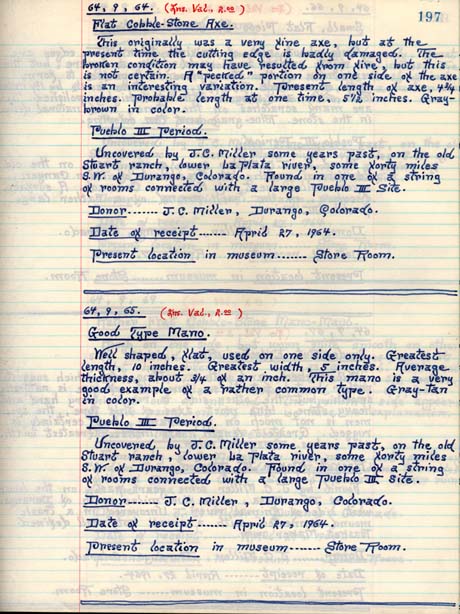 197
64, 9, 64. (Ins. Val., 2.00)
Flat Cobble-Stone Axe.
This originally was a very fine axe, but at the
present time the cutting edge is badly damaged. The
broken condition may have resulted from fire, but this
is not certain. A "pecked" portion on one side of the axe
is an interesting variation. Present length of axe, 4 3/4
inches. Probable length at one time, 5 1/2 inches. Gray-
brown in color.
Pueblo III Period.
Uncovered by J.C. Miller some years past, on the old
Stuart ranch, lower La Plata river, some forty miles
S.W. of Durango, Colorado. Found in one of a string
of rooms connected with a large Pueblo III Site.
Donor....... J.C. Miller, Durango, Colorado.
Date of receipt...... April 27, 1964.
Present location in museum....... Store Room.
64, 9, 65. (Ins. Val., 2.00)
Good Type Mano.
Well shaped, flat, used on one side only. Greatest
length, 10 inches. Greatest width, 5 inches. Average
thickness, about 3/4 of an inch. This mano is a very
good example of a rather common type. Gray-Tan
in color.
Pueblo III Period.
Uncovered by J.C. Miller some years past, on the old
Stuart ranch, lower La Plata river, some forty miles
S.W. of Durango, Colorado. Found in one of a string
of rooms connected with a large Pueblo III Site.
Donor........ J.C. Miller, Durango, Colorado.
Date of receipt....... April 27, 1964.
Present location in museum....... Store Room.